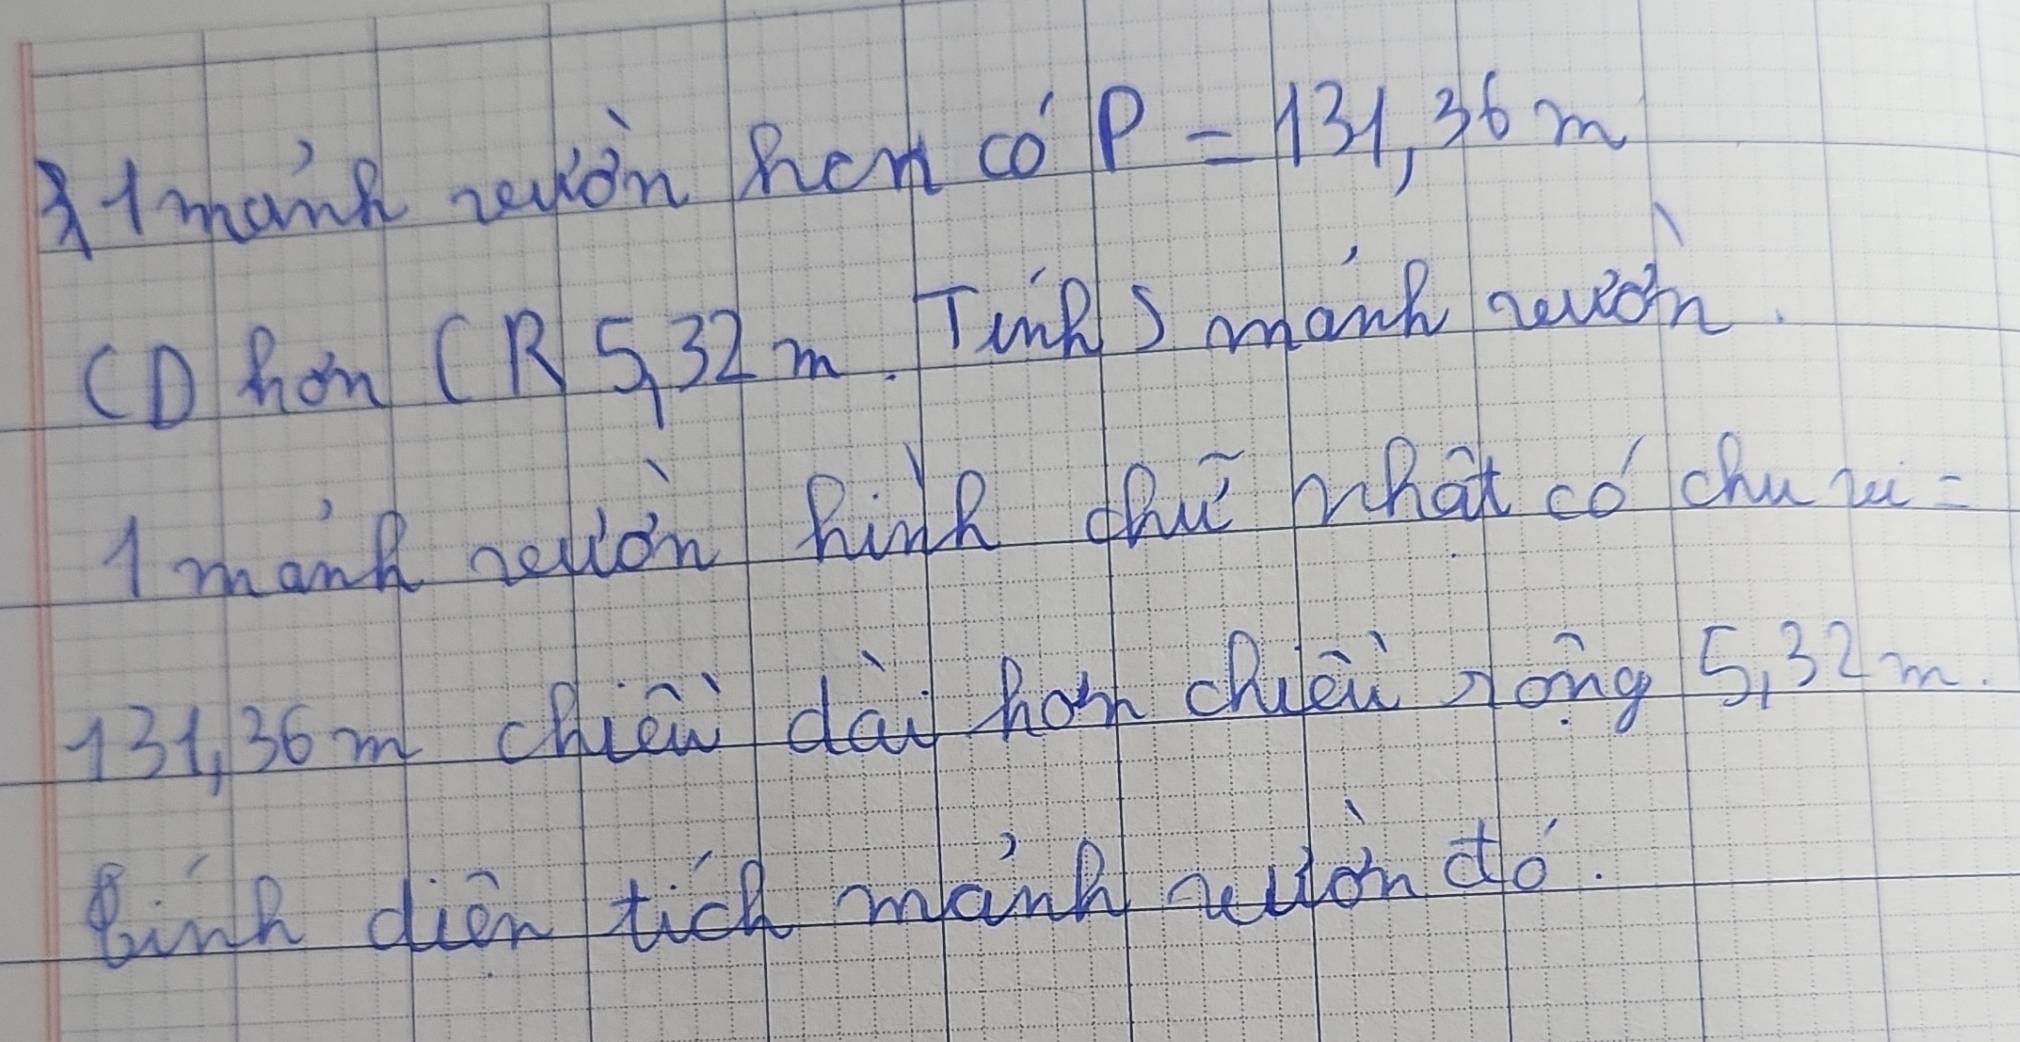 3, 1 mảnh vườn hcn có P = 131,36 m
CD hơn CR 5,32 m. Tính S mảnh vườn.
1 mảnh vườn hình chữ nhật có chu vi =
131,36 m chiều dài hơn chiều rộng 5,32 m.
Tính diện tích mảnh vườn đó.